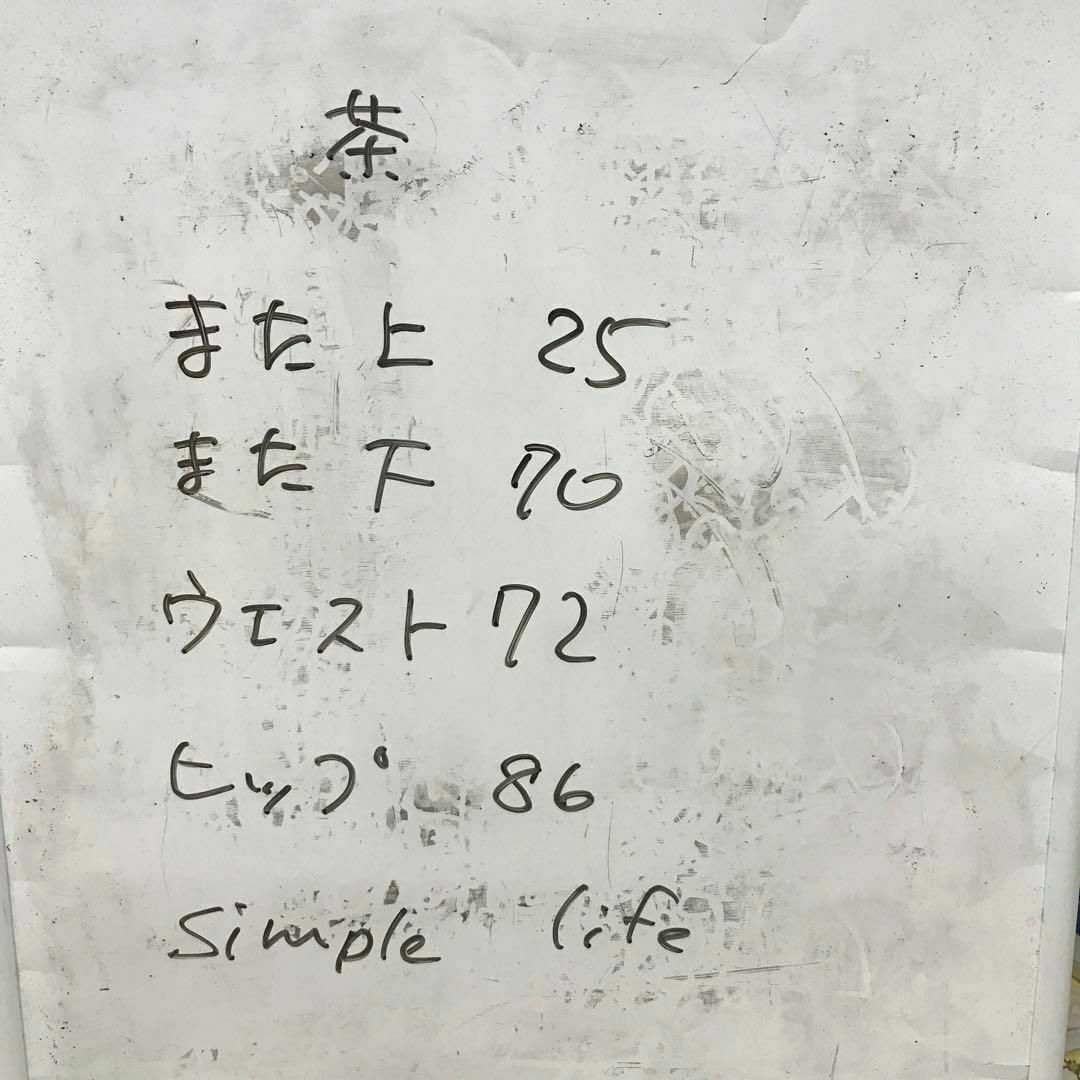 茶
また上 25
また下 70
ウエスト 72
ヒップ 86
simple life